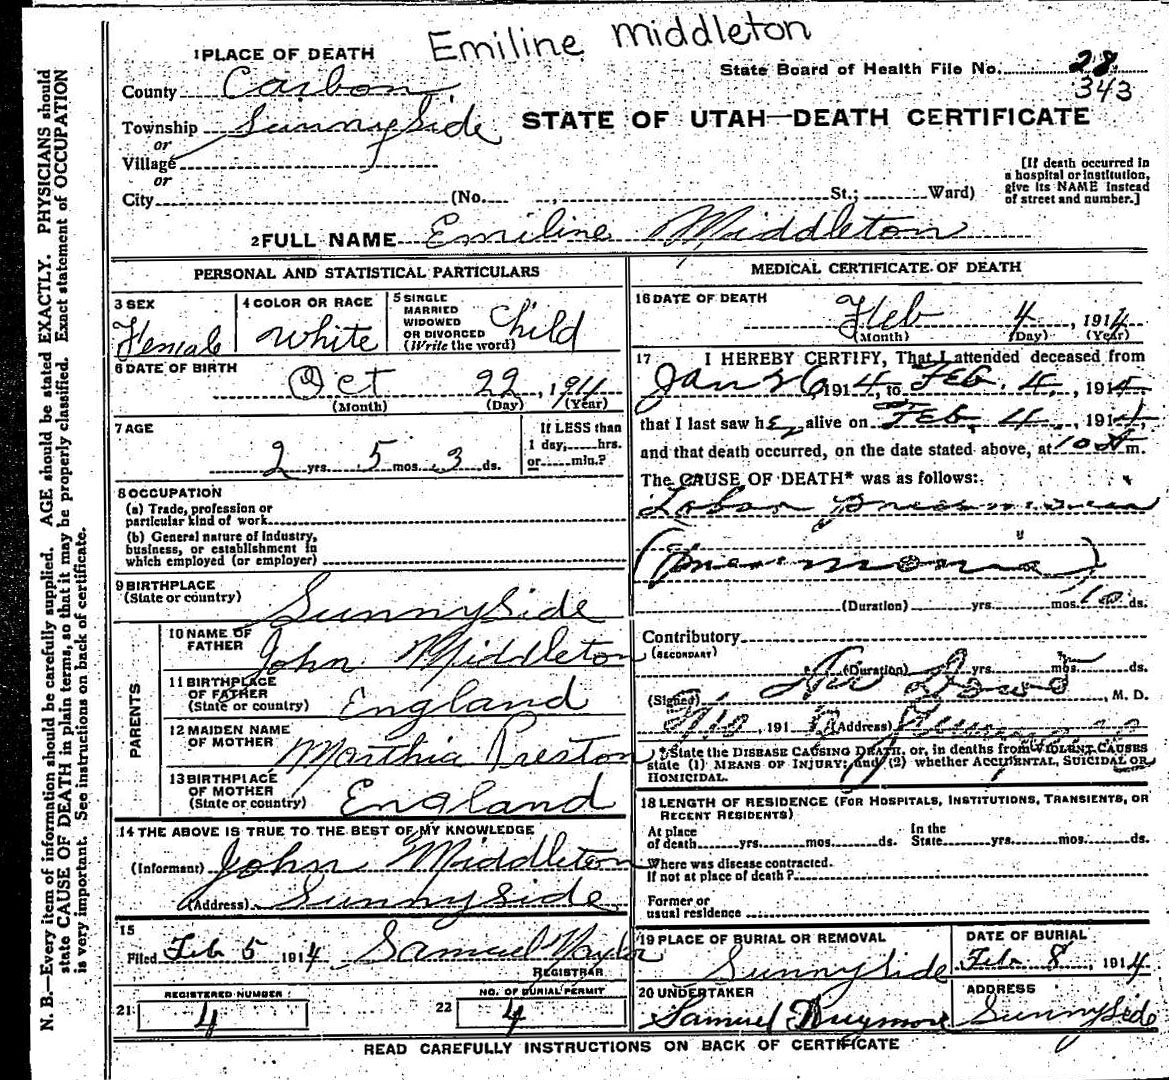 Emiline Middleton
1 PLACE OF DEATH
State Board of Health File No. 28
343
County Carbon
Township Sunnyside
or
Village
or
City (No. St.; Ward)
STATE OF UTAH—DEATH CERTIFICATE
[If death occurred in
a hospital or institution,
give its NAME instead
of street and number.]
2 FULL NAME Emiline Middleton
PERSONAL AND STATISTICAL PARTICULARS
3 SEX
Female
4 COLOR OR RACE
White
5 SINGLE
MARRIED
WIDOWED
OR DIVORCED
(Write the word)
Child
6 DATE OF BIRTH
Oct 22, 1911
(Month) (Day) (Year)
7 AGE
2 yrs. 5 mos. 3 ds.
If LESS than
1 day, hrs.
or min.?
8 OCCUPATION
(a) Trade, profession or
particular kind of work
(b) General nature of Industry,
business, or establishment in
which employed (or employer)
9 BIRTHPLACE
(State or country)
Sunnyside
PARENTS
10 NAME OF
FATHER
John Middleton
11 BIRTHPLACE
OF FATHER
(State or country)
England
12 MAIDEN NAME
OF MOTHER
Marthia Preston
13 BIRTHPLACE
OF MOTHER
(State or country)
England
14 THE ABOVE IS TRUE TO THE BEST OF MY KNOWLEDGE
(Informant) John Middleton
(Address) Sunnyside
15
Filed Feb 5 1914 Samuel Naylor
REGISTRAR
21 REGISTERED NUMBER
4
22 NO. OF BURIAL PERMIT
4
MEDICAL CERTIFICATE OF DEATH
16 DATE OF DEATH
Feb 4, 1914
(Month) (Day) (Year)
17 I HEREBY CERTIFY, That I attended deceased from
Jan 26, 1914, to Feb. 4, 1914,
that I last saw her alive on Feb. 4, 1914,
and that death occurred, on the date stated above, at 10 m.
The CAUSE OF DEATH* was as follows:
Lobar
(Pneumonia)
(Duration) yrs. mos. 10 ds.
Contributory
(SECONDARY)
(Duration) yrs. mos. ds.
(Signed) Dowd, M. D.
, 191 (Address)
* State the DISEASE CAUSING DEATH, or, in deaths from VIOLENT CAUSES
state (1) MEANS OF INJURY; and (2) whether ACCIDENTAL, SUICIDAL OR
HOMICIDAL.
18 LENGTH OF RESIDENCE (FOR HOSPITALS, INSTITUTIONS, TRANSIENTS, OR
RECENT RESIDENTS)
At place
of death yrs. mos. ds.
In the
State yrs. mos. ds.
Where was disease contracted.
If not at place of death?
Former or
usual residence
19 PLACE OF BURIAL OR REMOVAL
Sunnyside
DATE OF BURIAL
Feb 8, 1914
20 UNDERTAKER
Samuel
ADDRESS
Sunnyside
READ CAREFULLY INSTRUCTIONS ON BACK OF CERTIFICATE
N. B.—Every item of information should be carefully supplied. AGE should be stated EXACTLY. PHYSICIANS should
state CAUSE OF DEATH in plain terms, so that it may be properly classified. Exact statement of OCCUPATION
is very important. See instructions on back of certificate.